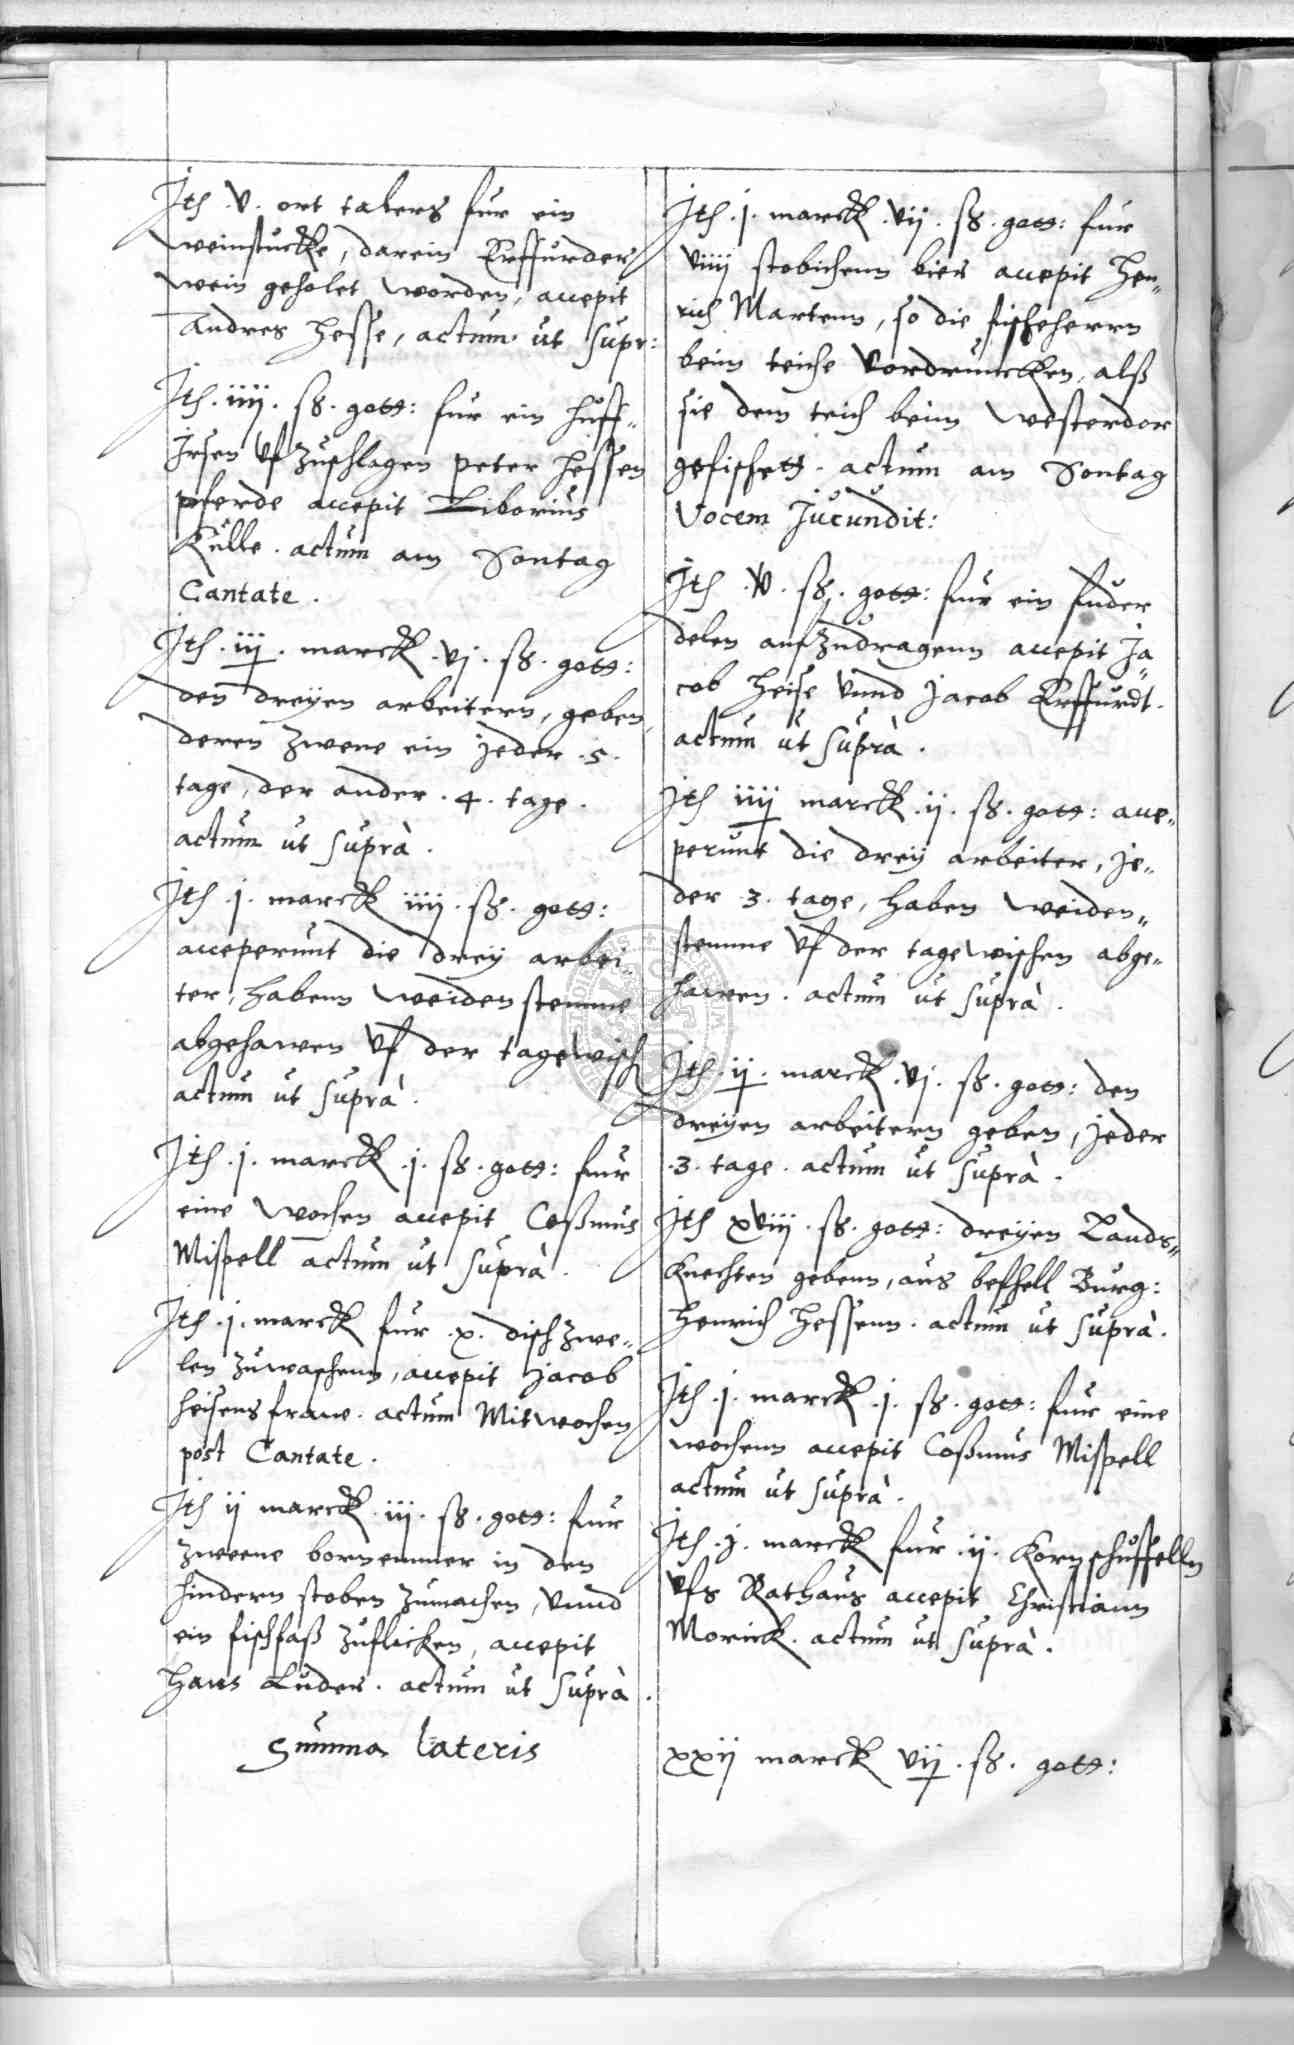 Jtꝭ .v. ort talers fur ein
weinstucke, darein Erffurder
wein geholet worden, accepit
Andres Hesse, actum ut supr:
Jtꝭ .iiij. ß. gott: fur ein huff„
Jrsen vfzuschlagen peter Hessen
pferde accepit Liborius
Kulle . actum am Sontag
Cantate .
Jtꝭ .iij. marck .vj. ß. gott:
den dreyen arbeitern, geben,
deren zwene ein Jeder .5.
tage, der ander .4. tage .
actum ut suprà .
Jtꝭ .j. marck iiij. ß. gott:
acceperunt die drey arbei„
ter, habenn weidenstemme
abgehawen vf der tagewisch
actum ut suprà .
Jtꝭ .j. marck .j. ß. gott: fur
eine wochen accepit Coßmus
Mißpell actum ut suprà .
Jtꝭ .j. marck fur .x. dischzwe„
len zuwaschenn, accepit Jacob
heisens frawe . actum Mitwochen
post Cantate .
Jtꝭ ij marck .iij. ß. gott: fur
zweene bornemmer in den
hindern stoben zumachen, vnnd
ein fischfaß zuflicken, accepit
Hans Luder . actum ut suprà .
Summa lateris
Jtꝭ .j. marck .vij. ß. gott: fur
viiij stobichenn bier accepit Hen„
rich Martenn, so die fischeherrn
beim teiche vordruncken, alß
sie den teich beim Westerdor
gefischett . actum am Sontag
Vocem Jucundit:
Jtꝭ .v. ß. gott: fur ein fuder
delen aufzudragenn accepit Ja„
cob Heise vnnd Jacob Erffurdt .
actum ut suprà .
Jtꝭ iiij marck .ij. ß. gott: acce„
perunt die drey arbeiter, Je„
der .3. tage, haben weiden„
stemme vf der tagewischen abge„
hawen . actum ut suprà .
Jtꝭ .ij. marck .vj. ß. gott: den
dreyen arbeitern geben, Jeder
.3. tage . actum ut suprà .
Jtꝭ xviij. ß. gott: dreyen Lands„
Knechten gebenn, aus befhell Burg:
Henrich Hessenn . actum ut suprà .
Jtꝭ .j. marck .j. ß. gott: fur eine
wochenn accepit Coßmus Mißpell
actum ut suprà .
Jtꝭ .j. marck fur .ij. Kornschuffelln
vfs Rathaus accepit Christiann
Morick . actum ut suprà .
xxij marck vij. ß. gott: